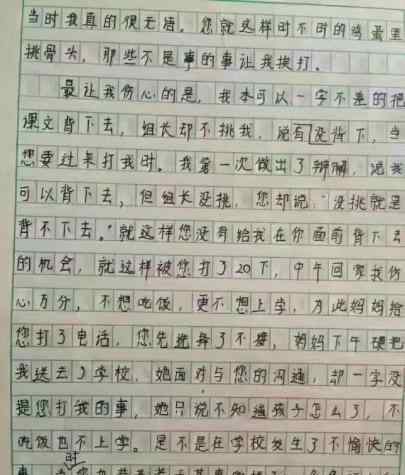 当时我真的很无语。您就这样时不时的鸡蛋里
挑骨头，那些不是事的事让我挨打。
最让我伤心的是，我本可以一字不差的把
课文背下去，组长却不挑我，说有没背下，当
您要过来打我时。我第一次做出了辩解，说我
可以背下去，但组长没挑，您却说，"没挑就是
背不下去。"就这样您没有给我在你面前背下去
的机会，就这样被您打了20下，中午回家我伤
心万分，不想吃饭，更不想上学，为此妈妈给
您打了电话，您先选择了不接，妈妈下午硬把
我送去了学校，她面对与您的沟通，却一字没
提您打我的事，她只说不知道孩子怎么了，不
吃饭也不上学。是不是在学校发生了不愉快的
时